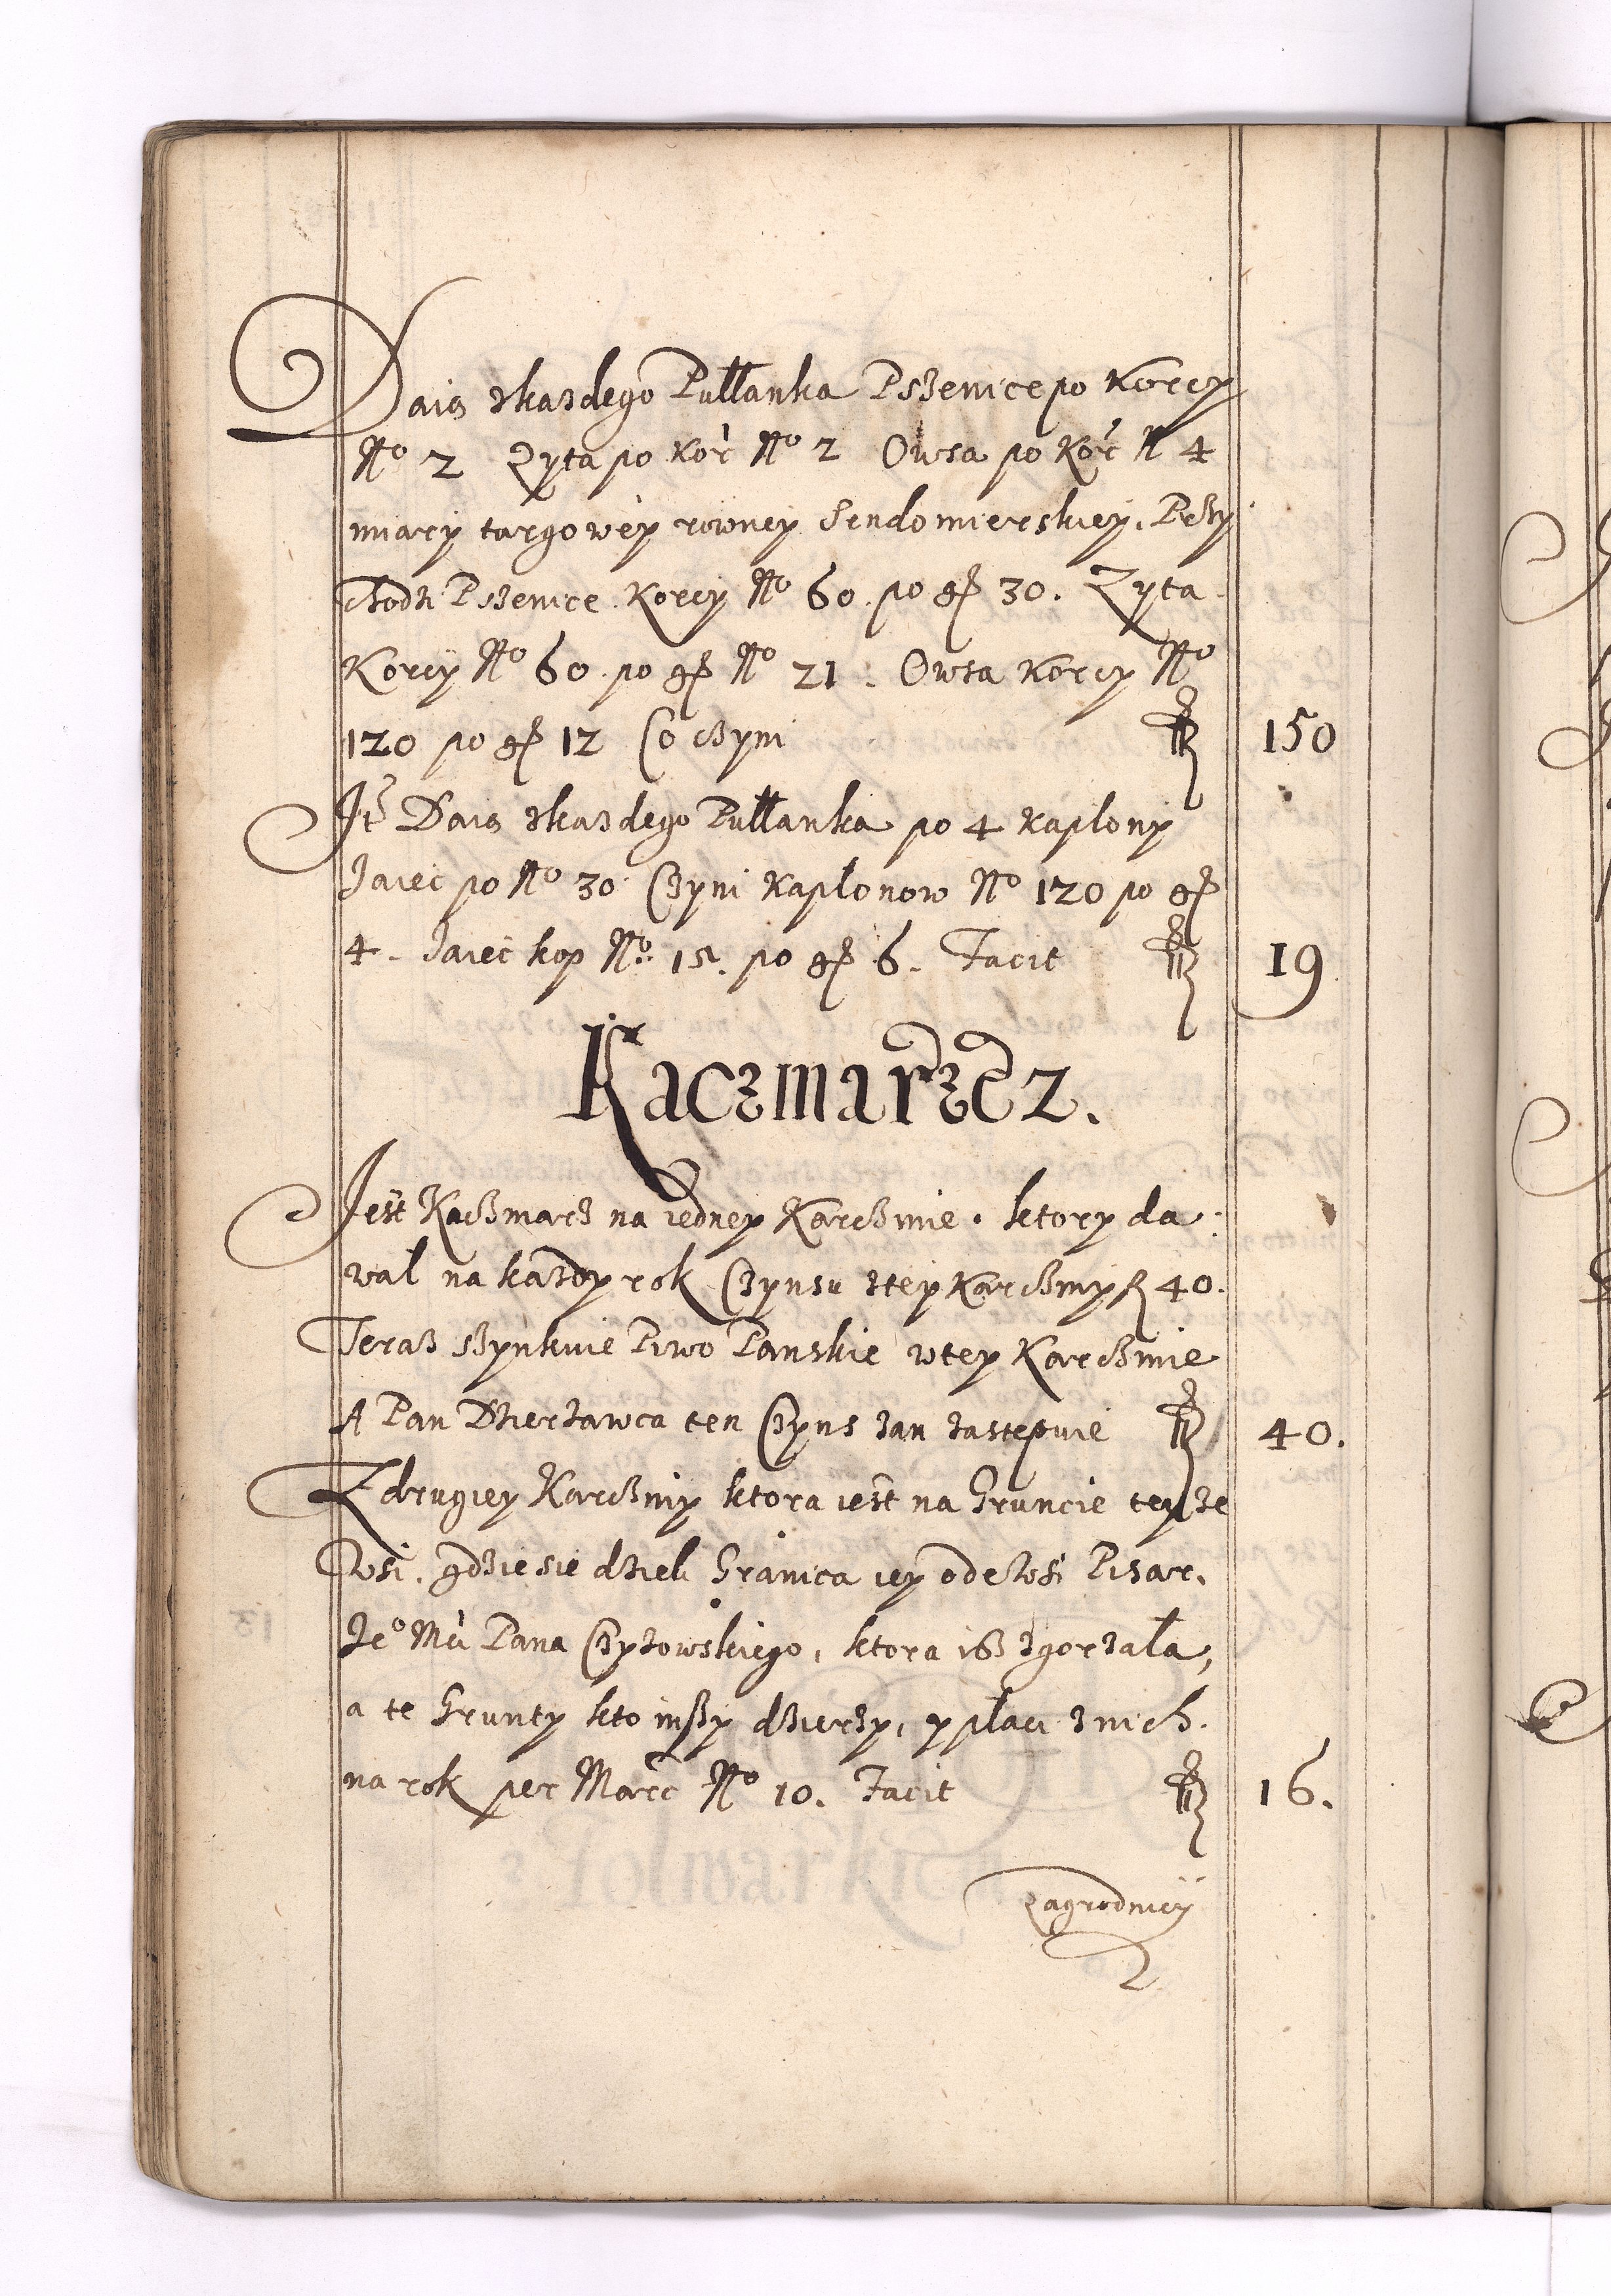 Daią zkazdego Pułłanka Pszenice po Korcy
No 2 Zyta po Kor No 2 Owsa po Kor N 4
miary targowey rowney Sendomierskiey. Przy
chodzi Pszenice Korcy No 60. po gr 30. Zyta
Korcy No 60. po gr No 21. Owsa Korcy No
120 po gr 12 Co czyni fl 150
It Daią zkazdego Pułłanka po 4 Kapłony
Iaiec po No 30 Czyni Kapłonow No 120 po gr
4. Iaiec kop No 15. po gr 6. Facit fl 19
Kaczmarze.
Iest Kaczmarz na iedney Karczmie. ktory da:
wał na kazdy rok Czynsu ztey Karczmy fl 40.
Teraz szynkuie Piwo Panskie wtey Karczmie
A Pan Dzierzawca ten Czyns zan zastępuie fl 40.
Z drugiey Karczmy ktora iest na Gruncie teyze
wsi. gdzie sie dzieli Granica iey ode wsi Pisar.
Ie° Mći Pana Czyzowskiego, ktora isz zgorzała,
a te Grunty kto inszy dzierzy, y płaci znich.
na rok per Marc No 10. Facit fl 16.
Zagrodnicy